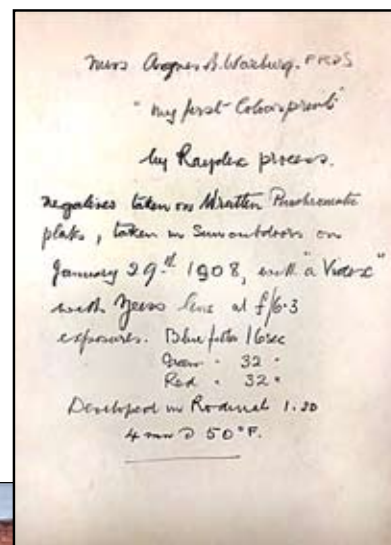 Miss Agnes B. Warburg. FRPS
"My first Colour print"
by Raydex process.
negatives taken on Wratten Panchromatic
plates, taken in Sun outdoors on
January 29th 1908, with "a Videx"
with Zeiss lens at f/6.3
exposures. Blue filter 16sec
Green " 32 "
Red " 32 "
Developed in Rodinal 1.20
4 min @ 50°F.